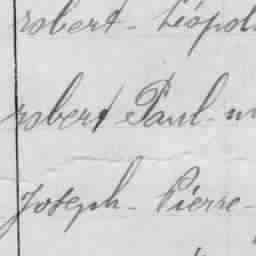 robert - Léopol
robert Paul - m
Joseph - Pierre -